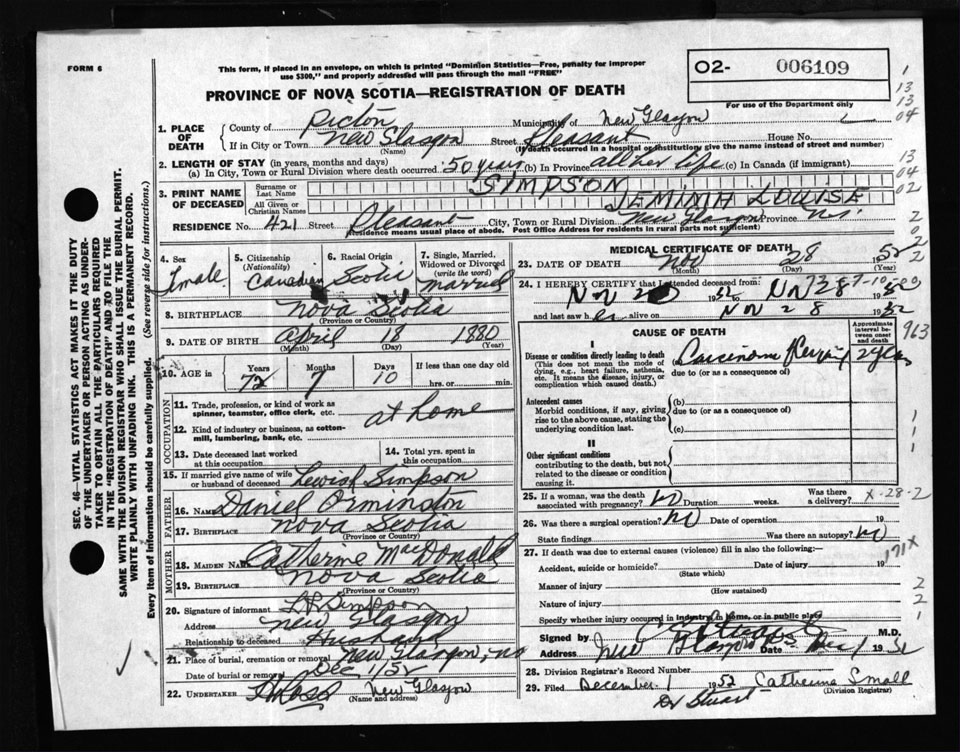 FORM 6
This form, if placed in an envelope, on which is printed "Dominion Statistics—Free, penalty for improper
use $300," and properly addressed will pass through the mail "FREE"
02- 006109
For use of the Department only
PROVINCE OF NOVA SCOTIA—REGISTRATION OF DEATH
1. PLACE OF DEATH
County of Pictou Municipality of New Glasgow
If in City or Town New Glasgow Street Pleasant House No.
(Name) (If death occurred in a hospital or institution give the name instead of street and number)
2. LENGTH OF STAY (in years, months and days)
(a) In City, Town or Rural Division where death occurred 50 years (b) In Province all her life (c) In Canada (if immigrant)
3. PRINT NAME OF DECEASED
Surname or Last Name SIMPSON
All Given or Christian Names JEMIMA LOUISE
RESIDENCE No. 421 Street Pleasant City, Town or Rural Division New Glasgow Province N.S.
(Residence means usual place of abode. Post Office Address for residents in rural parts not sufficient)
4. Sex Female
5. Citizenship (Nationality) Canadian
6. Racial Origin Scotia
7. Single, Married, Widowed or Divorced (write the word) Married
8. BIRTHPLACE Nova Scotia
(Province or Country)
9. DATE OF BIRTH April 18 1880
(Month) (Day) (Year)
10. AGE in Years 72 Months 7 Days 10 If less than one day old
hrs. or min.
OCCUPATION
11. Trade, profession, or kind of work as spinner, teamster, office clerk, etc. at home
12. Kind of industry or business, as cotton-mill, lumbering, bank, etc.
13. Date deceased last worked at this occupation
14. Total yrs. spent in this occupation
15. If married give name of wife or husband of deceased Lewish Simpson
FATHER
16. NAME Daniel Ormiston
17. BIRTHPLACE Nova Scotia
(Province or Country)
MOTHER
18. MAIDEN NAME Catherine MacDonald
19. BIRTHPLACE Nova Scotia
(Province or Country)
20. Signature of informant Simpson
Address New Glasgow
Relationship to deceased Husband
21. Place of burial, cremation or removal New Glasgow, NS
Date of burial or removal Dec 1/52
22. UNDERTAKER New Glasgow
(Name and address)
MEDICAL CERTIFICATE OF DEATH
23. DATE OF DEATH Nov 28 1952
(Month) (Day) (Year)
24. I HEREBY CERTIFY that I attended deceased from:
and last saw her alive on Nov 28 1952
CAUSE OF DEATH
Approximate interval between onset and death
I
Disease or condition directly leading to death
(This does not mean the mode of dying, e.g., heart failure, asthenia, etc. It means the disease, injury, or complication which caused death.)
(a) Carcinoma
due to (or as a consequence of)
Antecedent causes
Morbid conditions, if any, giving rise to the above cause, stating the underlying condition last.
(b)
due to (or as a consequence of)
(c)
II
Other significant conditions
contributing to the death, but not related to the disease or condition causing it.
963
25. If a woman, was the death associated with pregnancy? No Duration weeks. Was there a delivery?
x-28-2
26. Was there a surgical operation? No Date of operation 19
State findings Was there an autopsy? No
27. If death was due to external causes (violence) fill in also the following:—
171x
Accident, suicide or homicide? Date of injury 19
(State which)
Manner of injury
(How sustained)
Nature of injury
Specify whether injury occurred in industry, in home, or in public place
Signed by M.D.
Address New Glasgow NS Date Dec 1 1952
28. Division Registrar's Record Number
29. Filed December 1 1952 Catherine Small
(Division Registrar)
Dr Stuart
SEC. 46—VITAL STATISTICS ACT MAKES IT THE DUTY
OF THE UNDERTAKER OR PERSON ACTING AS UNDER-
TAKER TO OBTAIN ALL THE PARTICULARS REQUIRED
IN THE "REGISTRATION OF DEATH" AND TO FILE THE
SAME WITH THE DIVISION REGISTRAR WHO SHALL ISSUE THE BURIAL PERMIT.
WRITE PLAINLY WITH UNFADING INK. THIS IS A PERMANENT RECORD.
Every item of information should be carefully supplied. (See reverse side for instructions.)